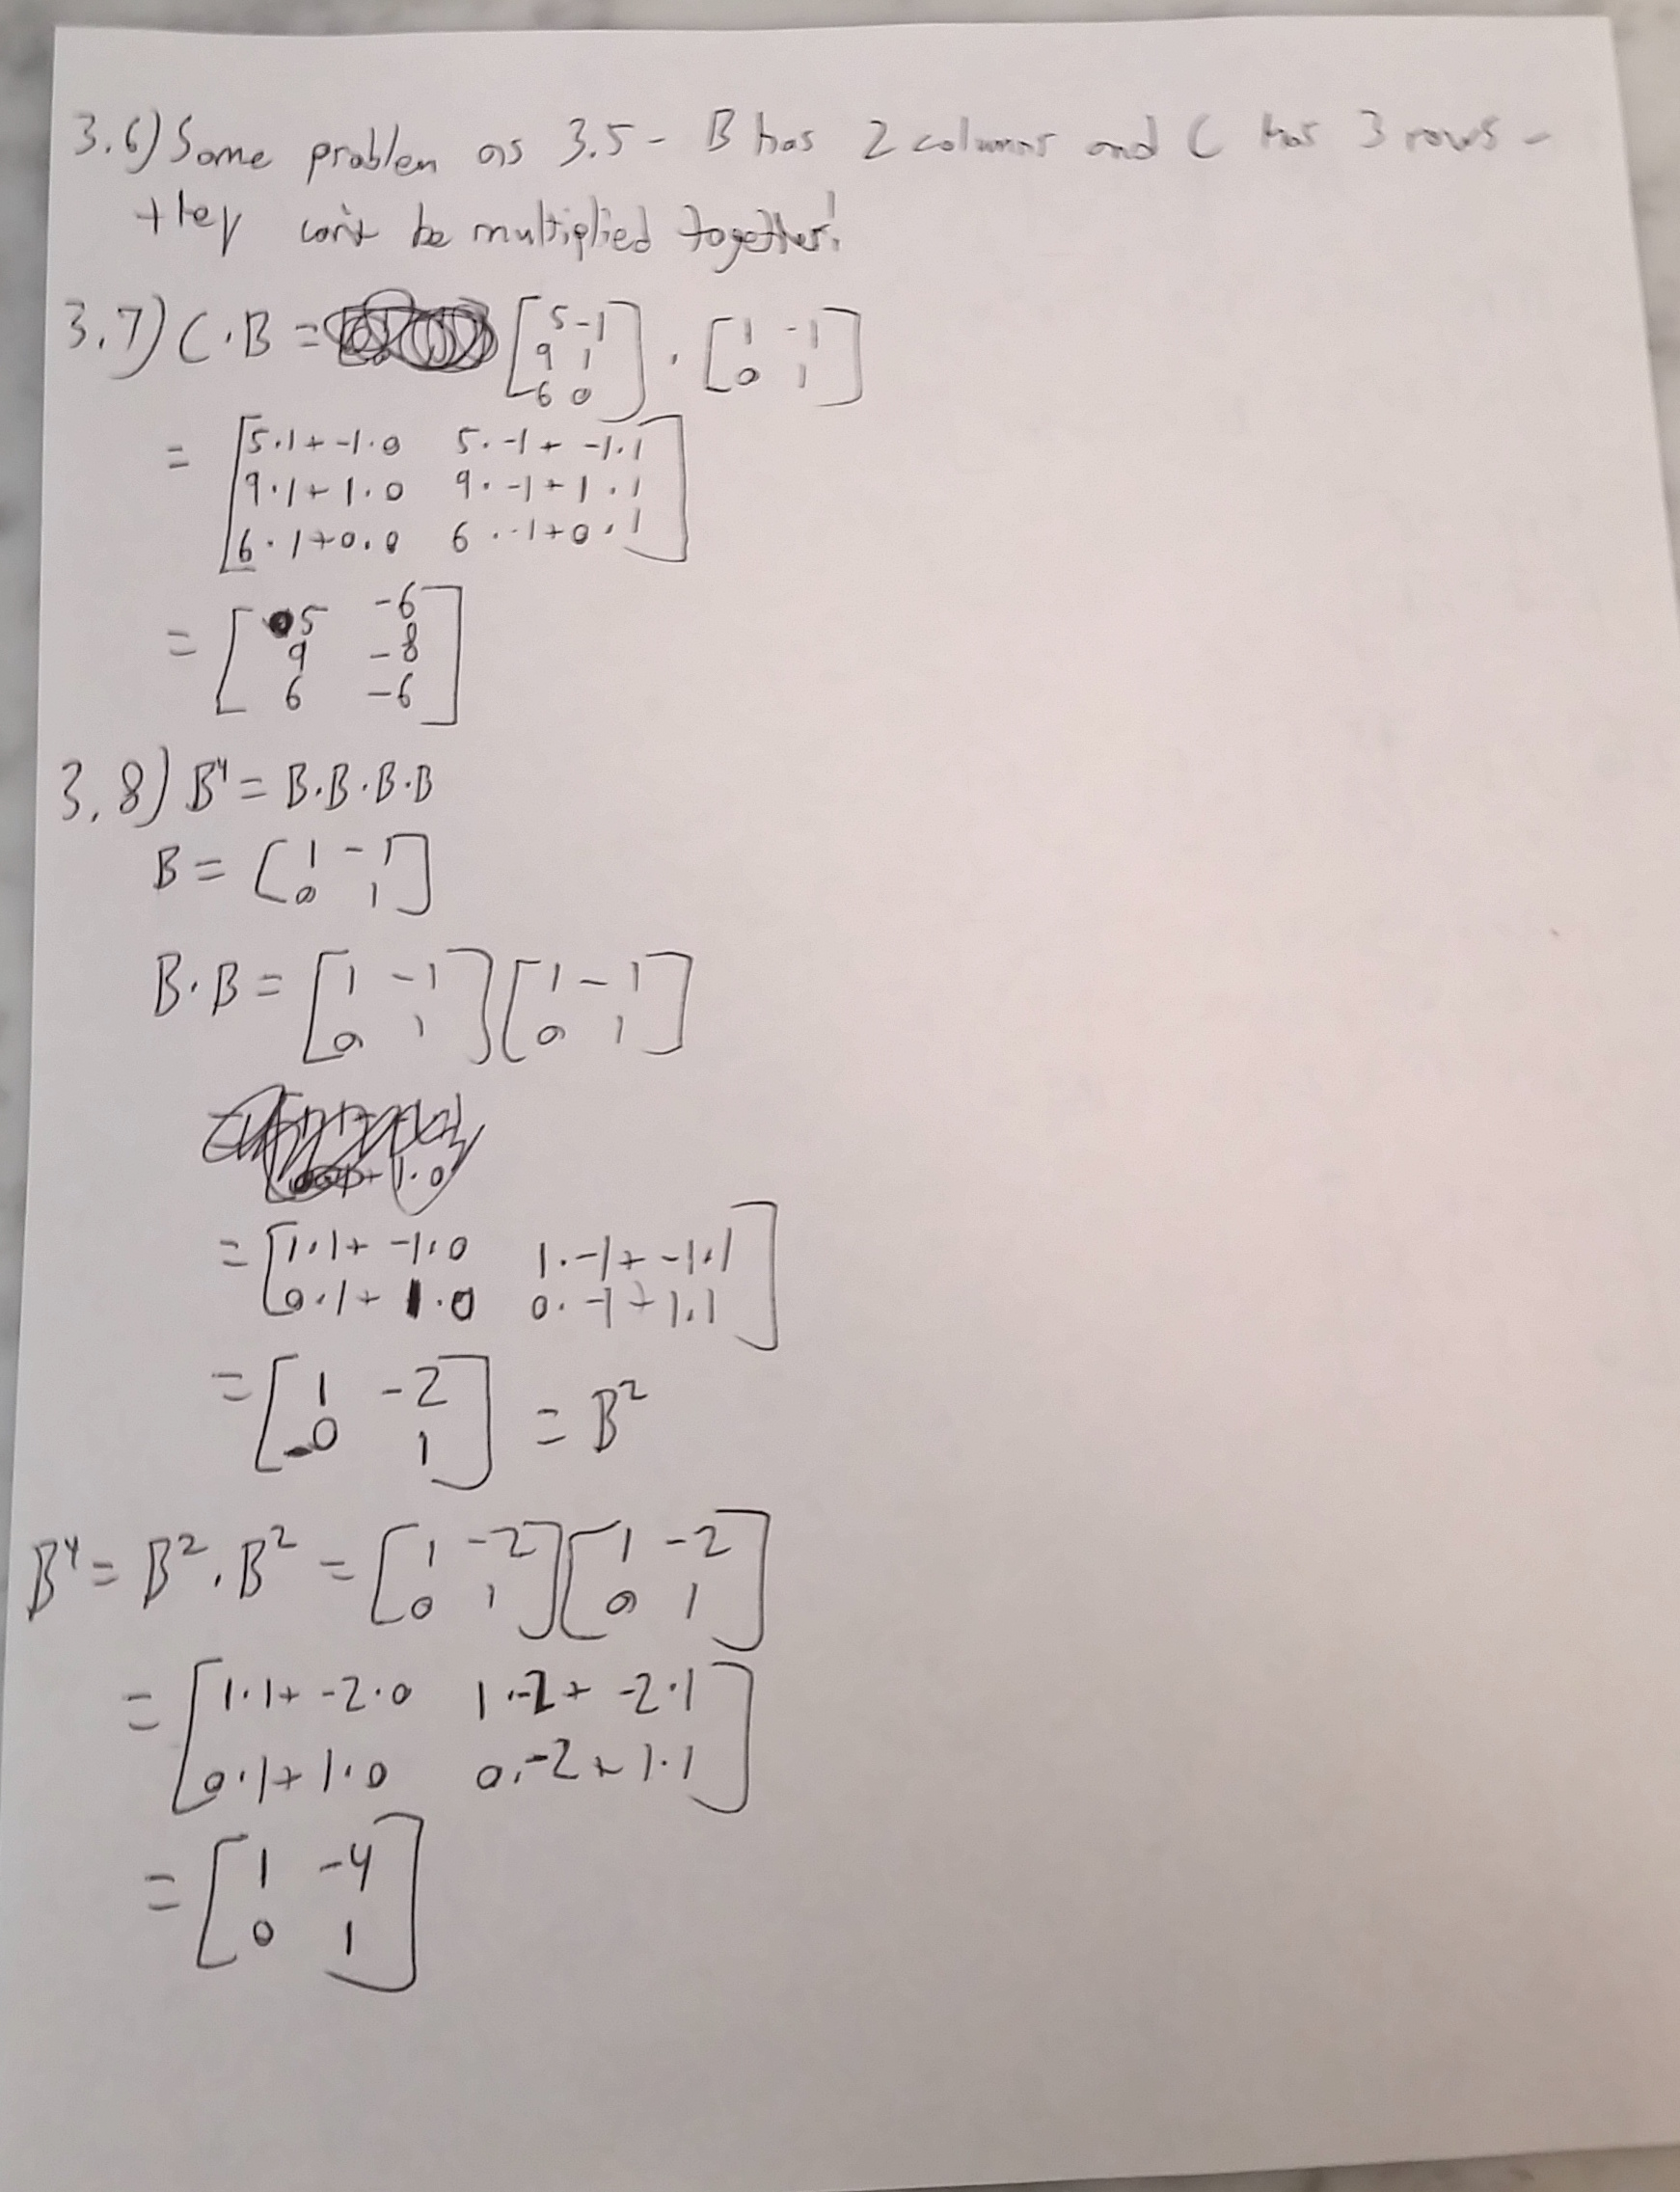 3.6) Same problem as 3.5 - B has 2 columns and C has 3 rows -
they can't be multiplied together!
3.7) C·B = [5 -1
9 1
6 0] · [1 -1
0 1]
= [5·1+-1·0 5·-1+-1·1
9·1+1·0 9·-1+1·1
6·1+0·0 6·-1+0·1]
= [5 -6
9 -8
6 -6]
3.8) B⁴ = B·B·B·B
B = [1 -1
0 1]
B·B = [1 -1
0 1] [1 -1
0 1]
= [1·1+-1·0 1·-1+-1·1
0·1+1·0 0·-1+1·1]
= [1 -2
0 1] = B²
B⁴ = B²·B² = [1 -2
0 1] [1 -2
0 1]
= [1·1+-2·0 1·-2+-2·1
0·1+1·0 0·-2+1·1]
= [1 -4
0 1]